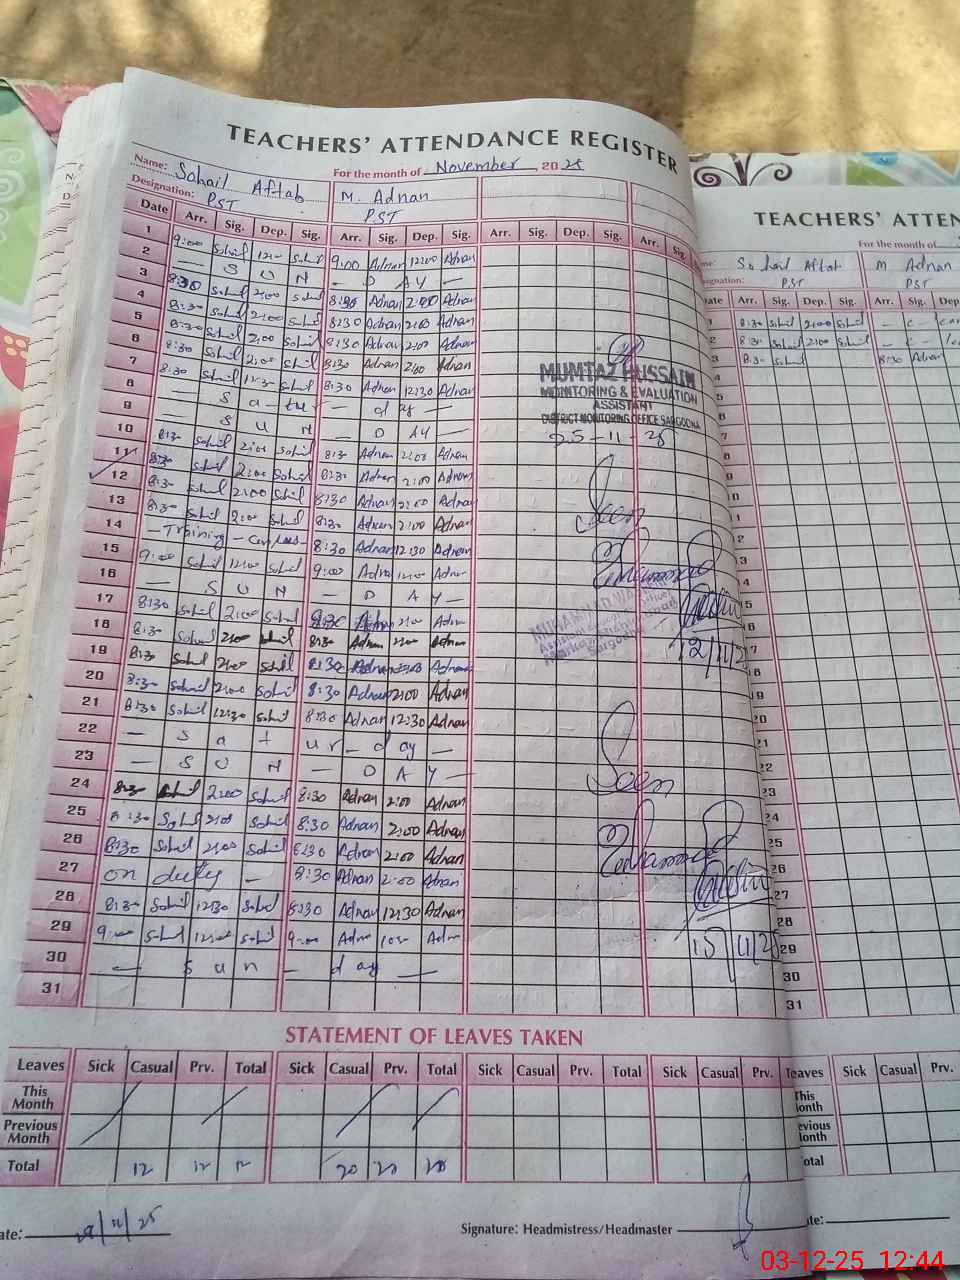 TEACHERS' ATTENDANCE REGISTER
Name: Sohail Aftab For the month of November, 2025
Designation: PST M. Adnan
PST
Date Arr. Sig. Dep. Sig. Arr. Sig. Dep. Sig. Arr. Sig. Dep. Sig. Arr. Sig.
1 9:00 Sohil 12:00 Sohil 9:00 Adnan 12:00 Adnan
2 — S U N — D AY —
3 8:30 Sohil 2:00 Sohil 8:30 Adnan 2:00 Adnan
4 8:30 Sohil 2:00 Sohil 8:30 Adnan 2:00 Adnan
5 8:30 Sohil 2:00 Sohil 8:30 Adnan 2:00 Adnan
6 8:30 Sohil 2:00 Sohil 8:30 Adnan 2:00 Adnan
7 8:30 Sohil 12:30 Sohil 8:30 Adnan 12:30 Adnan
8 — S a tu — d ay —
9 — S U N — D AY —
10 8:30 Sohil 2:00 Sohil 8:30 Adnan 2:00 Adnan
11 8:30 Sohil 2:00 Sohil 8:30 Adnan 2:00 Adnan
12 8:30 Sohil 2:00 Sohil 8:30 Adnan 2:00 Adnan
13 8:30 Sohil 2:00 Sohil 8:30 Adnan 2:00 Adnan
14 — Training — 8:30 Adnan 12:30 Adnan
15 9:00 Sohil 12:00 Sohil 9:00 Adnan 12:00 Adnan
16 — S U N — D A Y —
17 8:30 Sohil 2:00 Sohil 8:30 Adnan 2:00 Adnan
18 8:30 Sohail 2:00 Sohil 8:30 Adnan 2:00 Adnan
19 8:30 Sohil 2:00 Sohil 8:30 Adnan 2:00 Adnan
20 8:30 Sohail 2:00 Sohil 8:30 Adnan 2:00 Adnan
21 8:30 Sohil 12:30 Sohil 8:30 Adnan 12:30 Adnan
22 — S a t ur — d ay —
23 — S U N — D A Y —
24 8:30 Sohil 2:00 Sohil 8:30 Adnan 2:00 Adnan
25 8:30 Sohil 2:00 Sohil 8:30 Adnan 2:00 Adnan
26 8:30 Sohil 2:00 Sohil 8:30 Adnan 2:00 Adnan
27 on duty — 8:30 Adnan 2:00 Adnan
28 8:30 Sohil 12:30 Sohil 8:30 Adnan 12:30 Adnan
29 9:00 Sohil 12:00 Sohil 9:00 Adnan Adnan
30 — S u n — d ay —
31
MUMTAZ HUSSAIN
MONITORING & EVALUATION
ASSISTANT
DISTRICT MONITORING OFFICE SARGODHA
25-11-25
Seen
Muhammad
12/11/25
Seen
Muhammad
15/11/25
STATEMENT OF LEAVES TAKEN
Leaves Sick Casual Prv. Total Sick Casual Prv. Total Sick Casual Prv. Total Sick Casual Prv.
This Month
Previous Month
Total 12 12 12 20 20 20
ate: 29/11/25 Signature: Headmistress/Headmaster
TEACHERS' ATTEN
For the month of
me: Sohail Aftab M Adnan
signation: PST PST
Date Arr. Sig. Dep. Sig. Arr. Sig. Dep
1 8:30 Sohil 2:00 Sohil — c —
2 8:30 Sohil 2:00 Sohil — c —
3 8:30 Sohil 8:30 Adnan
4
5
6
7
8
9
10
1
2
3
4
15
16
17
18
19
20
21
22
23
24
25
26
27
28
29
30
31
eaves Sick Casual Prv.
This
onth
evious
Month
otal
te:
03-12-25 12:44